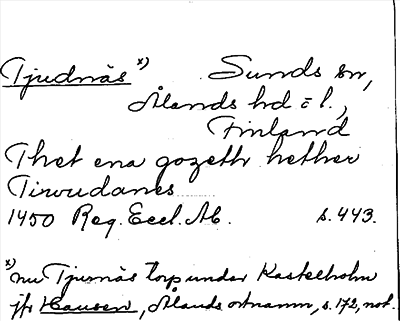 Tjudnäs x) Sunds sn,
Ålands hd o l.,
Finland
Thet ena gozeth hether
Tiwudanes
1450 Reg. Eccl. Ab. s. 443.
x) nu Tjusnäs torp under Kastelholm
jfr Hausen, Ålands ortnamn, s. 172, not.